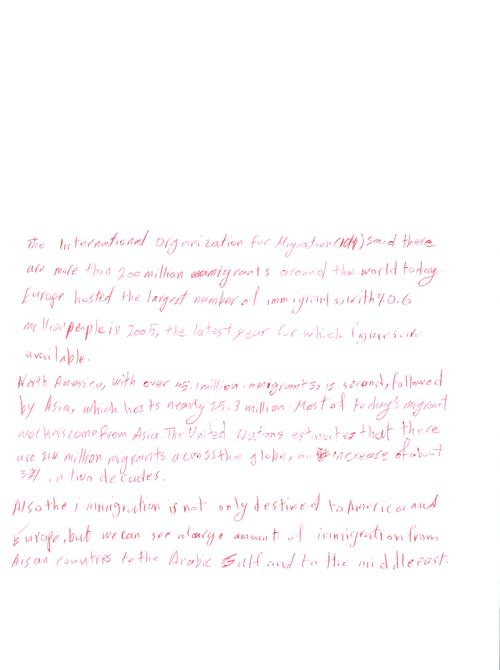 The International Organization for Migration (IOM) said there
are more than 200 million migrants around the world today.
Europe hosted the largest number of immigrants, with 70.6
million people in 2005, the latest year for which figures are
available.
North America, with over 45.1 million immigrants, is second, followed
by Asia, which hosts nearly 25.3 million. Most of today's migrant
workers come from Asia. The United Nations estimates that there
are 214 million migrants across the globe, an increase of about
37% in two decades.
Also the immigration is not only destined to America and
Europe, but we can see a large amount of immigration from
Asian countries to the Arabic Gulf and to the middle east.